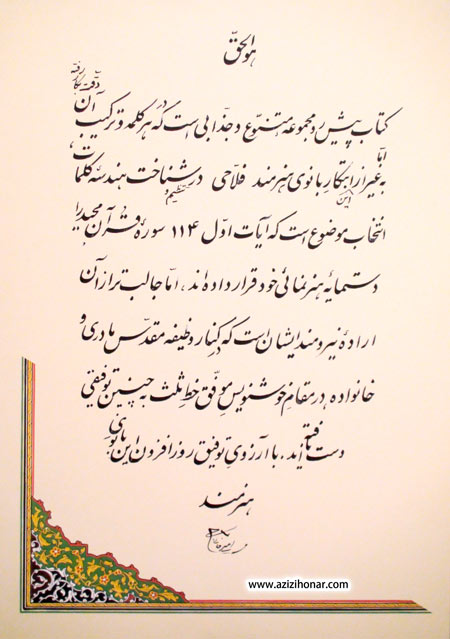 هو الحقّ
کتاب پیش رو مجموعه متنوّع و جذّابی است که در هر کلمه و ترکیب آن دقّت بکار رفته
امّا به غیر از ابتکار بانوی هنرمند فلاحی در شناخت و تنظیم هندسهٔ کلمات، این
انتخاب موضوع است که آیات اوّل ۱۱۴ سورهٔ قرآن مجید را
دستمایهٔ هنرنمائی خود قرار داده‌اند، امّا جالب‌تر از آن
ارادهٔ نیرومند ایشان است که در کنار وظیفه مقدّس مادری و
خانواده، در مقام خوشنویس موفّق خطّ ثلث به چنین توفیقی
دست یافته‌اند. با آرزوی توفیق روزافزون این بانوی
هنرمند
www.azizihonar.com